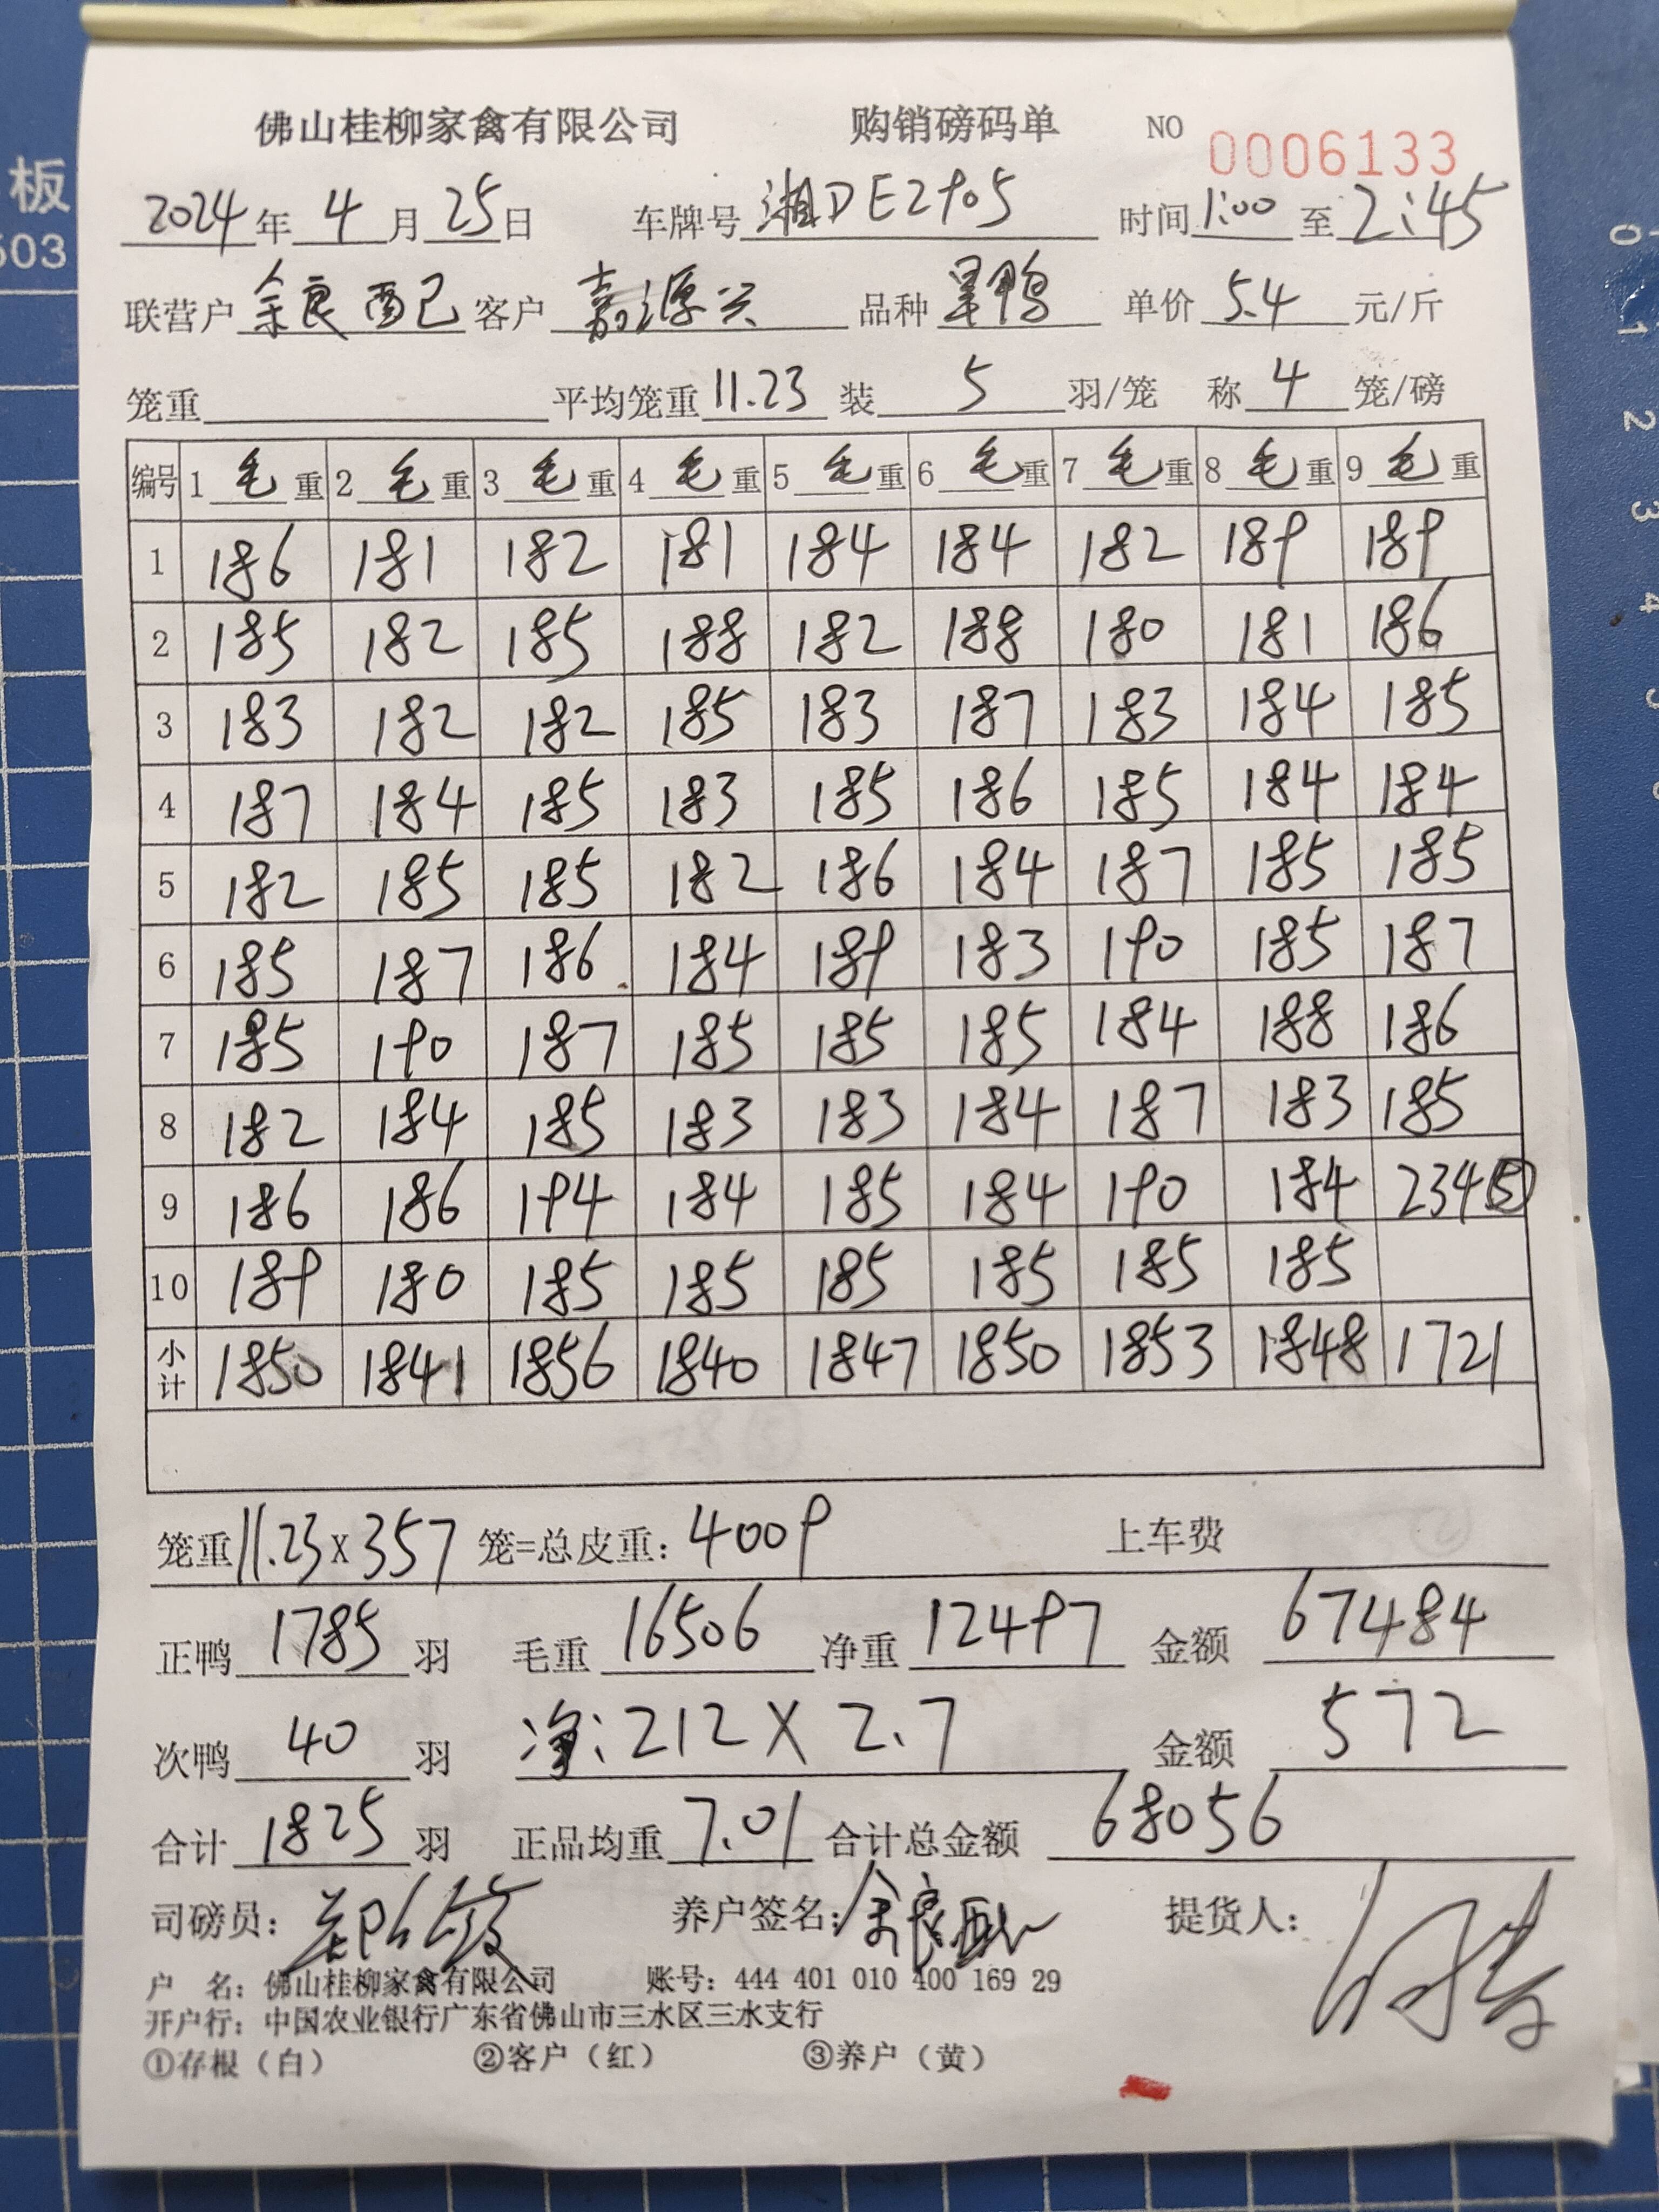 佛山桂柳家禽有限公司 购销磅码单 NO 0006133
2024年 4月 25日 车牌号 湘DE2905 时间 1:00 至 2:45
联营户 余良酉己 客户 嘉源兴 品种 旱鸭 单价 5.4 元/斤
笼重 平均笼重 11.23 装 5 羽/笼 称 4 笼/磅
编号 1 毛重 2 毛重 3 毛重 4 毛重 5 毛重 6 毛重 7 毛重 8 毛重 9 毛重
1 186 181 182 181 184 184 182 189 189
2 185 182 185 188 182 188 180 181 186
3 183 182 182 185 183 187 183 184 185
4 187 184 185 183 185 186 185 184 184
5 182 185 185 182 186 184 187 185 185
6 185 187 186 184 189 183 190 185 187
7 185 190 187 185 185 185 184 188 186
8 182 184 185 183 183 184 187 183 185
9 186 186 194 184 185 184 190 184 234⑤
10 189 180 185 185 185 185 185 185
小计 1850 1841 1856 1840 1847 1850 1853 1848 1721
笼重 11.23 x 357 笼=总皮重: 4009 上车费
正鸭 1785 羽 毛重 16506 净重 12497 金额 67484
次鸭 40 羽 净: 212 X 2.7 金额 572
合计 1825 羽 正品均重 7.01 合计总金额 68056
司磅员: 养户签名: 余良 提货人:
户 名: 佛山桂柳家禽有限公司 账号: 444 401 010 400 169 29
开户行: 中国农业银行广东省佛山市三水区三水支行
①存根（白） ②客户（红） ③养户（黄）
板
503
0 1 2 3 4 5